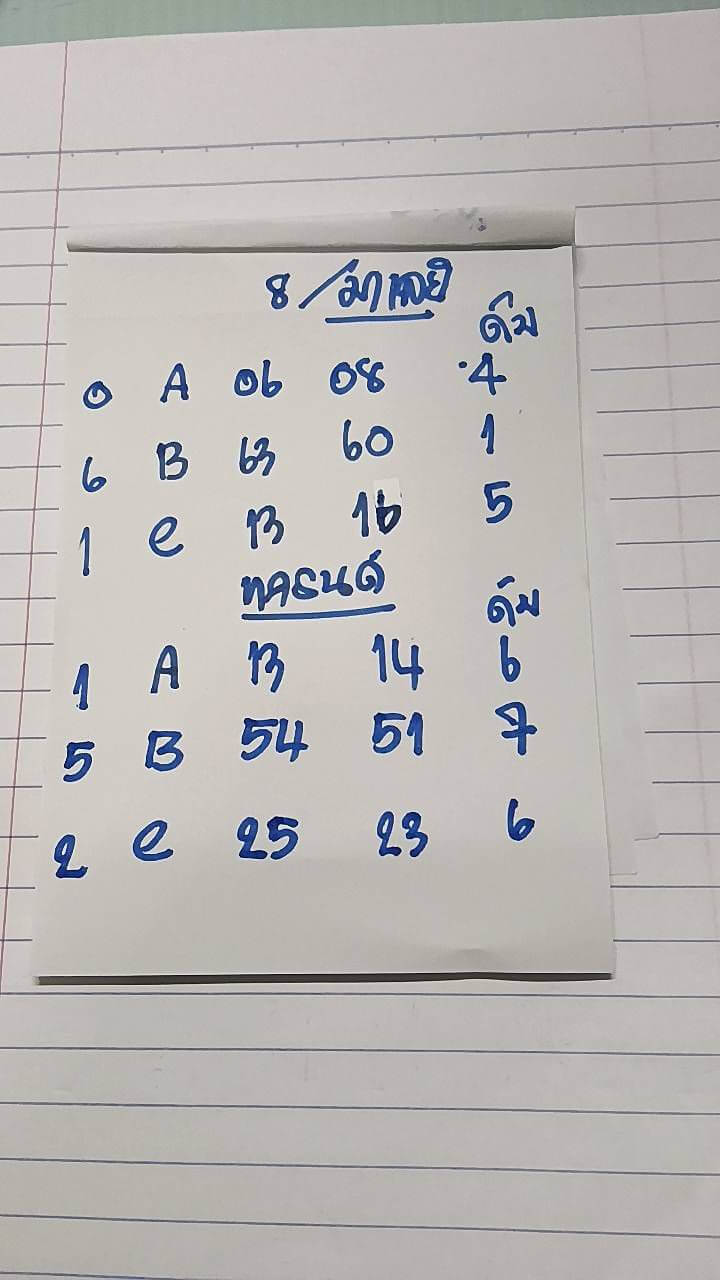 8 / มาเลย์
ดับ
0 A 06 08 4
6 B 63 60 1
1 C 13 16 5
ดับ
1 A 13 14 6
5 B 54 51 7
2 C 25 23 6